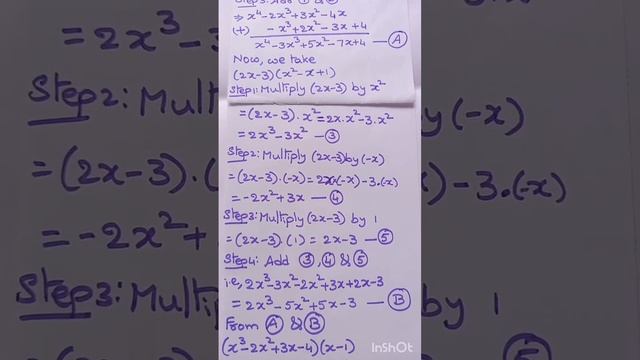 Step3: Add ① & ②
⇒ x⁴-2x³+3x²-4x
(+) -x³+2x²-3x+4
x⁴-3x³+5x²-7x+4 —Ⓐ
Now, we take
(2x-3)(x²-x+1)
Step1: Multiply (2x-3) by x²
=(2x-3).x²=2x.x²-3.x²
=2x³-3x² —③
Step2: Multiply (2x-3) by (-x)
=(2x-3).(-x)=2x.(-x)-3.(-x)
=-2x²+3x —④
Step3: Multiply (2x-3) by 1
=(2x-3).(1)=2x-3 —⑤
Step4: Add ③,④ & ⑤
i.e, 2x³-3x²-2x²+3x+2x-3
=2x³-5x²+5x-3 —Ⓑ
From Ⓐ & Ⓑ
(x³-2x²+3x-4)(x-1)
InShOt
=2x³-3
Step2: Mul
=(2x-3).(
=-2x²+
Step3: Mul
y(-x)
)-3.(-x)
by 1